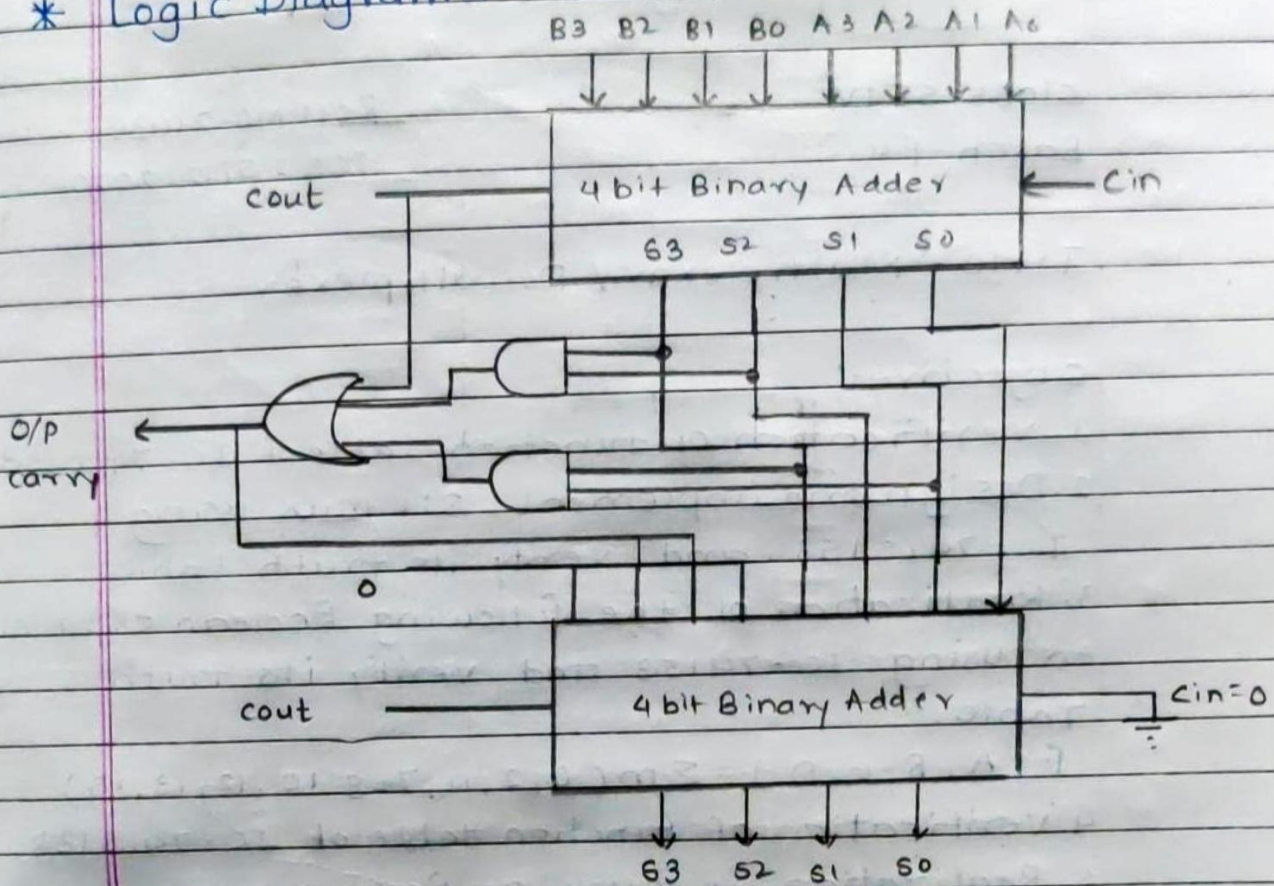 * Logic Diagram
B3 B2 B1 B0 A3 A2 A1 A0
cout 4 bit Binary Adder Cin
S3 S2 S1 S0
O/P
carry
0
cout 4 bit Binary Adder Cin=0
S3 S2 S1 S0